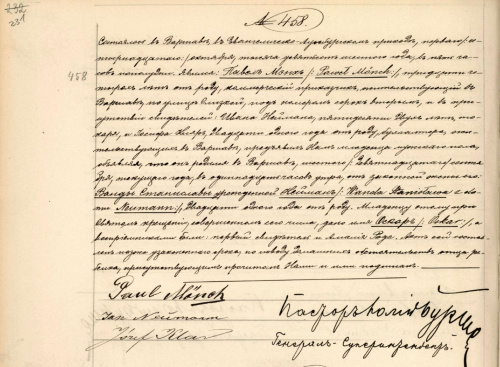 232
231
№ 458.
458
Состоялось въ Варшавѣ, въ Евангелическо-Аугсбургскомъ приходѣ, перваго /:че-
тырнадцатаго:/ октября, тысяча девятисотъ шестого года, въ пять ча-
совъ пополудни. Явился: Павелъ Мэнхъ /: Paweł Mönch:/, тридцати че-
тырехъ лѣтъ отъ роду, приказчикъ, жительствующій въ
Варшавѣ, по улицѣ подъ номеромъ сорокъ вторымъ, и въ при-
сутствіи свидѣтелей: Ивана Неймана, пятидесяти лѣтъ, то-
каря, и Іосифа Кляръ, двадцати одного года отъ роду, бухгалтера, жи-
тельствующихъ въ Варшавѣ, предъявилъ Намъ младенца мужескаго пола,
объявляя, что онъ родился въ Варшавѣ, шестого /:девятнадцатаго:/ сентя-
бря, текущаго года, въ одиннадцать часовъ утра, отъ законной жены его:
Ванды Станиславы урожденной Нейманъ /: Wanda Stanisława z do-
mu Neumann:/, двадцати одного года отъ роду. Младенцу этому при
святомъ крещеніи, совершенномъ сего числа, дано имя Оскаръ /: Oskar:/, а
воспріемниками были: первый свидѣтель и Амалія Роде. Актъ сей состав-
ленъ позже узаконеннаго срока, по поводу домашнихъ обстоятельствъ отца ре-
бенка, присутствующимъ прочитанъ Нами и ими подписанъ.
Paul Mönch
Jan Neumann
Józef Klar
Пасторъ Юлій Бурше
Генералъ-Суперинтендентъ.